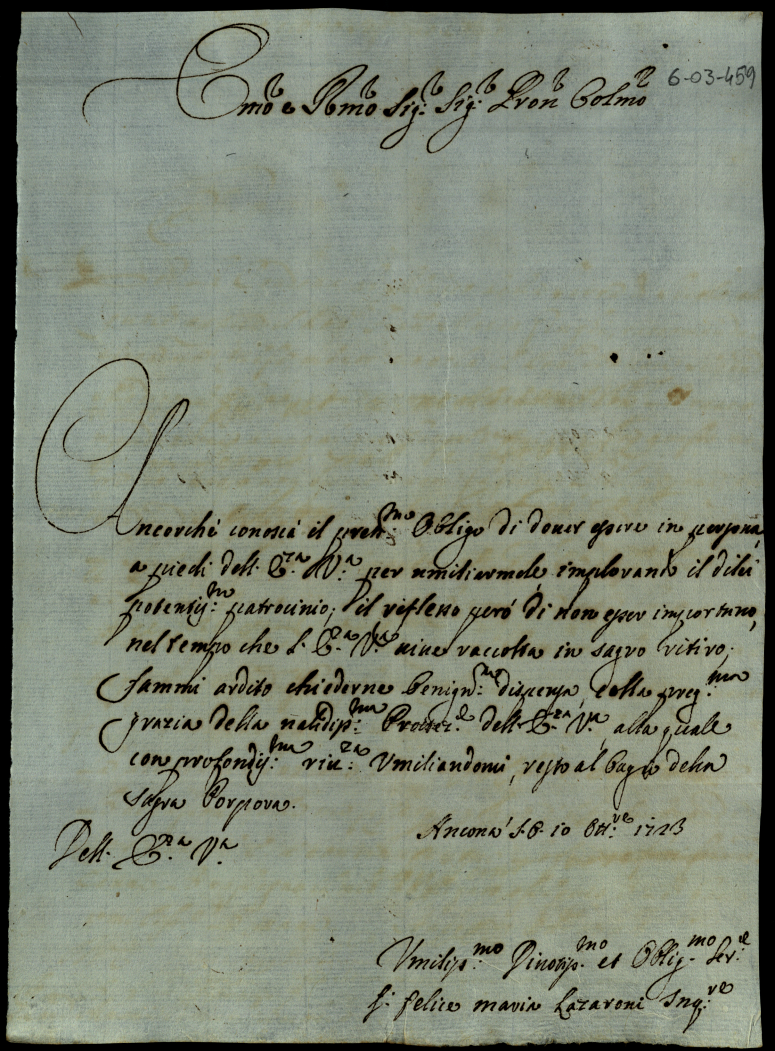 6-03-459
Emo e Rmo Sig.r Sig.r Pron Colmo
Ancorché conosca il prec.mo Obligo di dover essere in persona,
a piedi dell' E.za V.a per umiliarmele implorante il di lei
potentiss.mo patrocinio; il riflesso però di non esser importuno,
nel tempo che l' E.za V.a vive raccolta in sagro ritiro,
fammi ardito chiederne benign.ma dispensa, colla preg.ma
grazia della validiss.ma Protez.e dell' E.za V.a, alla quale
con profondiss.ma riv.za Umiliandomi, resto al bagio della
sagra Porpora.
Ancona S. O. 10 Ott.re 1723
Dell' E.za V.a
Umiliss.mo Divotiss.mo et Oblig.mo Ser.e
f. felice maria Lazaroni Inq.re